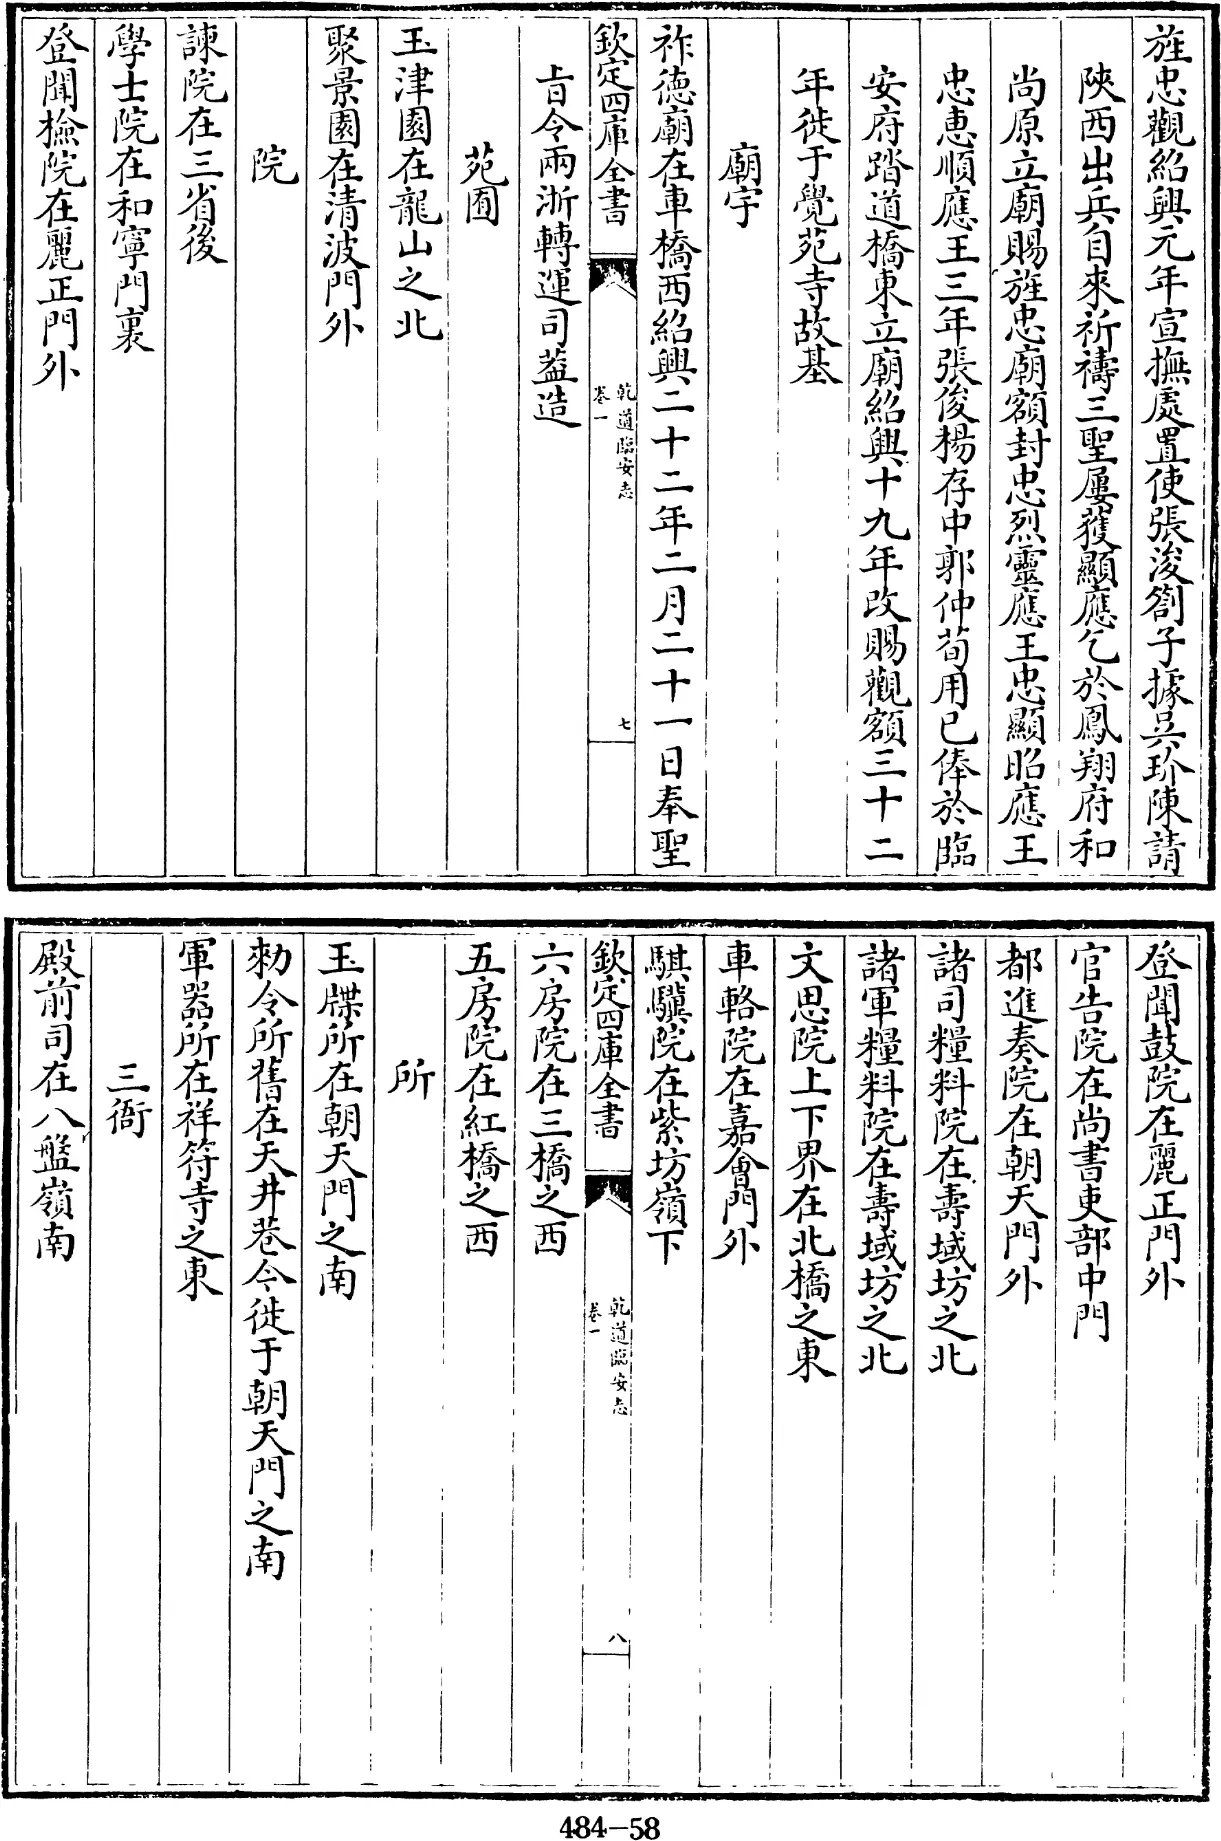 旌忠觀紹興元年宣撫處置使張浚劄子據吳玠陳請
陜西出兵自來祈禱三聖屢獲顯應乞於鳳翔府和
尚原立廟賜旌忠廟額封忠烈靈應王忠顯昭應王
忠惠順應王三年張俊楊存中郭仲荀用已俸於臨
安府踏道橋東立廟紹興十九年改賜觀額三十二
年徙于覺苑寺故基
廟宇
祚德廟在車橋西紹興二十二年二月二十一日奉聖
欽定四庫全書
乾道臨安志
卷一
七
旨令兩浙轉運司葢造
苑囿
玉津園在龍山之北
聚景園在清波門外
院
諫院在三省後
學士院在和寧門裏
登聞檢院在麗正門外
登聞鼓院在麗正門外
官告院在尚書吏部中門
都進奏院在朝天門外
諸司糧料院在壽域坊之北
諸軍糧料院在壽域坊之北
文思院上下界在北橋之東
車輅院在嘉會門外
騏驥院在紫坊嶺下
欽定四庫全書
乾道臨安志
卷一
八
六房院在三橋之西
五房院在紅橋之西
所
玉牒所在朝天門之南
勅令所舊在天井巷今徙于朝天門之南
軍器所在祥符寺之東
三衙
殿前司在八盤嶺南
484-58